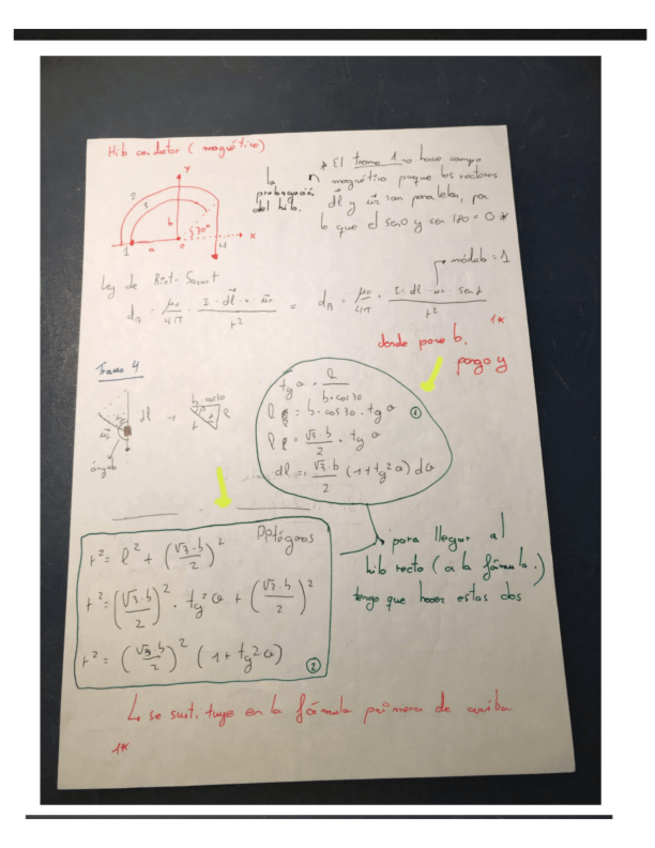 Hilo conductor (magnético)
y
2
3
b
30°
x
1
a
0
4
la
propagación
del hilo.
* El tramo 1 no hace campo
magnético porque los vectores
dl y ur son paralelos, por
lo que el sen0 y sen 180 = 0 *
Ley de Biot-Savart
módulo = 1
dB = μ0/4π · I · dl · x · ur / r² = dB = μ0/4π · I · dl · ur · sen α / r²
1*
donde pone b,
pongo y
Tramo 4
dl →
b · cos30
r
l
ur
ángulo
tg α = l / b · cos 30
l = b · cos 30 · tg α ①
l = √3 · b / 2 · tg α
dl = √3 · b / 2 (1 + tg² α) dα
Pitágoras
r² = l² + (√3 · b / 2)²
r² = (√3 · b / 2)² · tg² α + (√3 · b / 2)²
r² = (√3 · b / 2)² (1 + tg² α) ②
para llegar al
hilo recto (a la fórmula.)
tengo que hacer estas dos
↳ se sustituye en la fórmula primera de arriba
1*